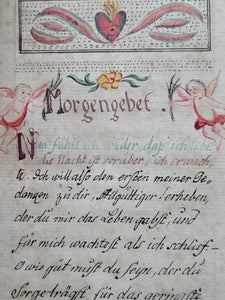 Morgengebet.
Nun fühle ich wieder, daß ich lebe
die Nacht ist vorüber, ich erwach-
te. Ich will also den ersten meiner Ge-
dangen zu dir, Allgültiger! erheben,
der du mir das Leben gabst, und
für mich wachtest als ich schlief-
O wie gut mußt du seyn, der du
Sorge trägst für das geringste